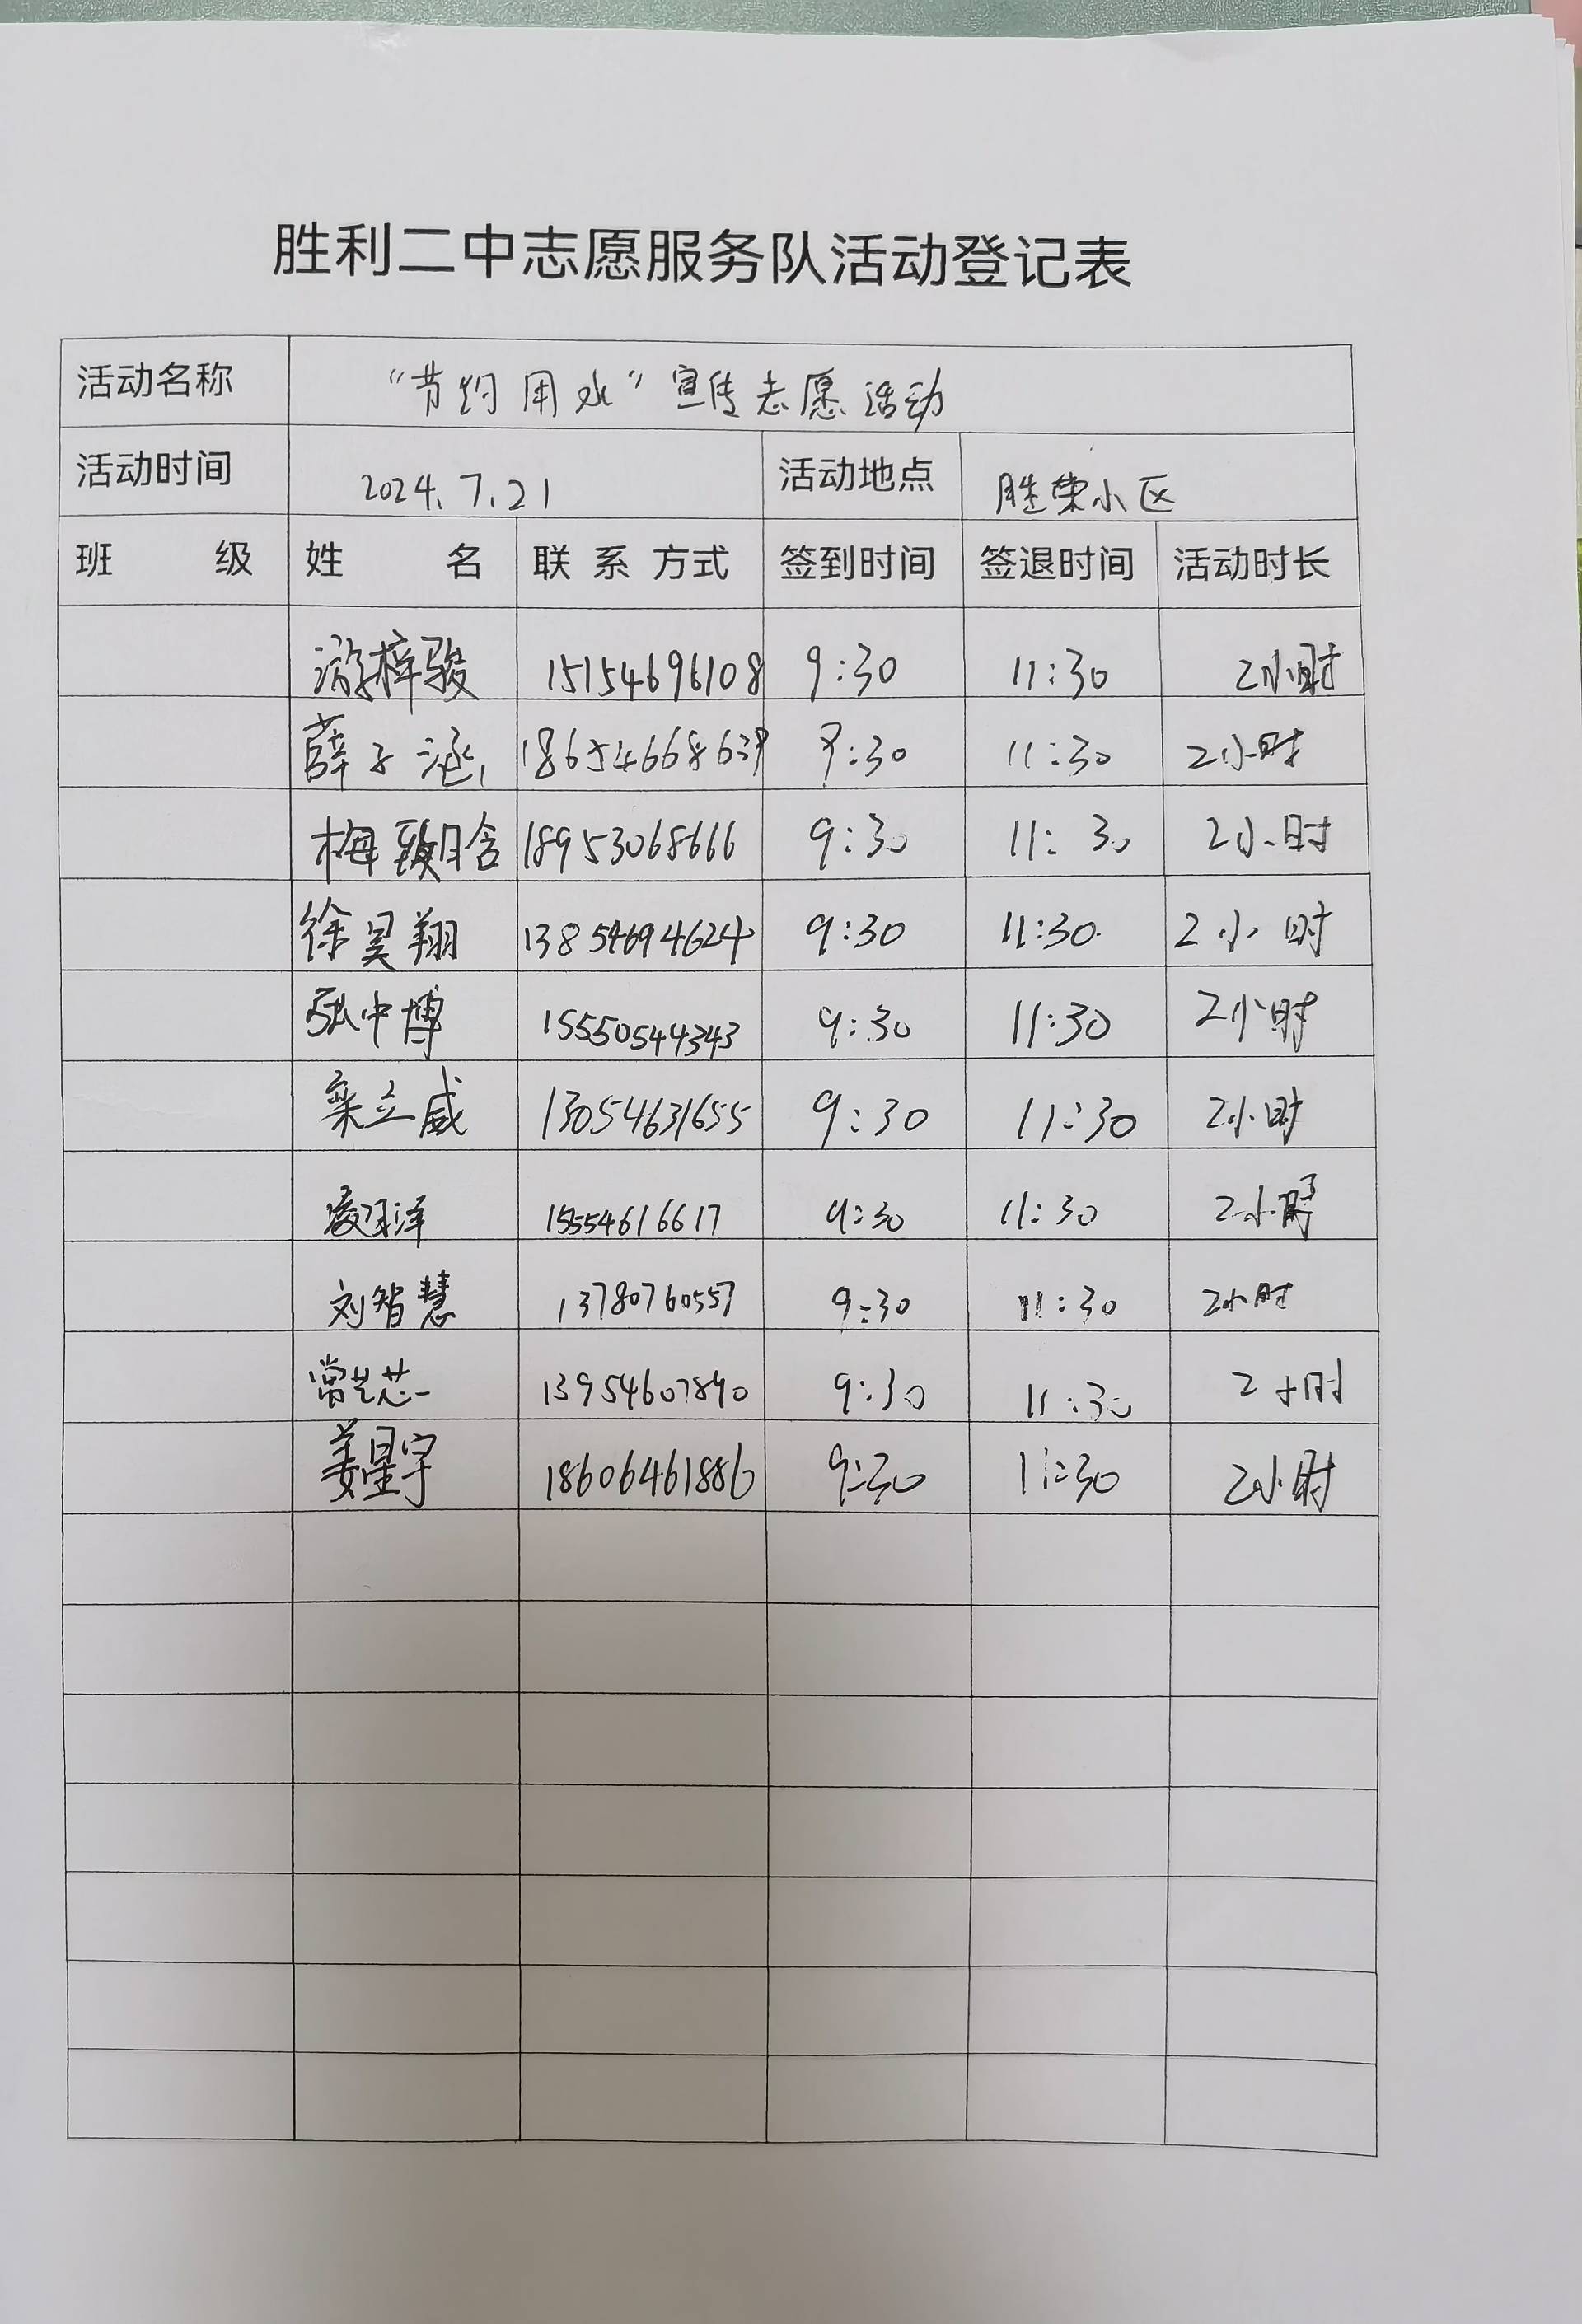 胜利二中志愿服务队活动登记表
活动名称 “节约用水”宣传志愿活动
活动时间 2024.7.21 活动地点 胜荣小区
班 级 姓 名 联系方式 签到时间 签退时间 活动时长
游梓骏 15154696108 9:30 11:30 2小时
薛子涵 9:30 11:30 2小时
梅 18953068666 9:30 11:30 2小时
徐昊翔 13854694624 9:30 11:30 2小时
张中博 15550544343 9:30 11:30 2小时
栾立威 13054631655 9:30 11:30 2小时
15554616617 9:30 11:30 2小时
刘智慧 13780760557 9:30 11:30 2小时
常芯 13954607890 9:30 11:30 2小时
姜星宇 18606461886 9:30 11:30 2小时